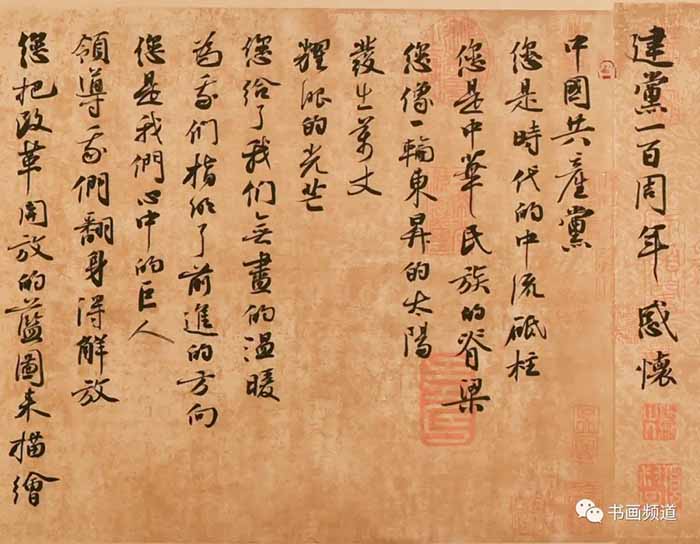 建黨一百周年感懷
中國共產黨
您是時代的中流砥柱
您是中華民族的脊梁
您像一輪東昇的太陽
發出萬丈
耀眼的光芒
您给了我们無盡的温暖
为我们指明了前進的方向
您是我們心中的巨人
領導我們翻身得解放
您把改革開放的藍圖来描繪
书画频道